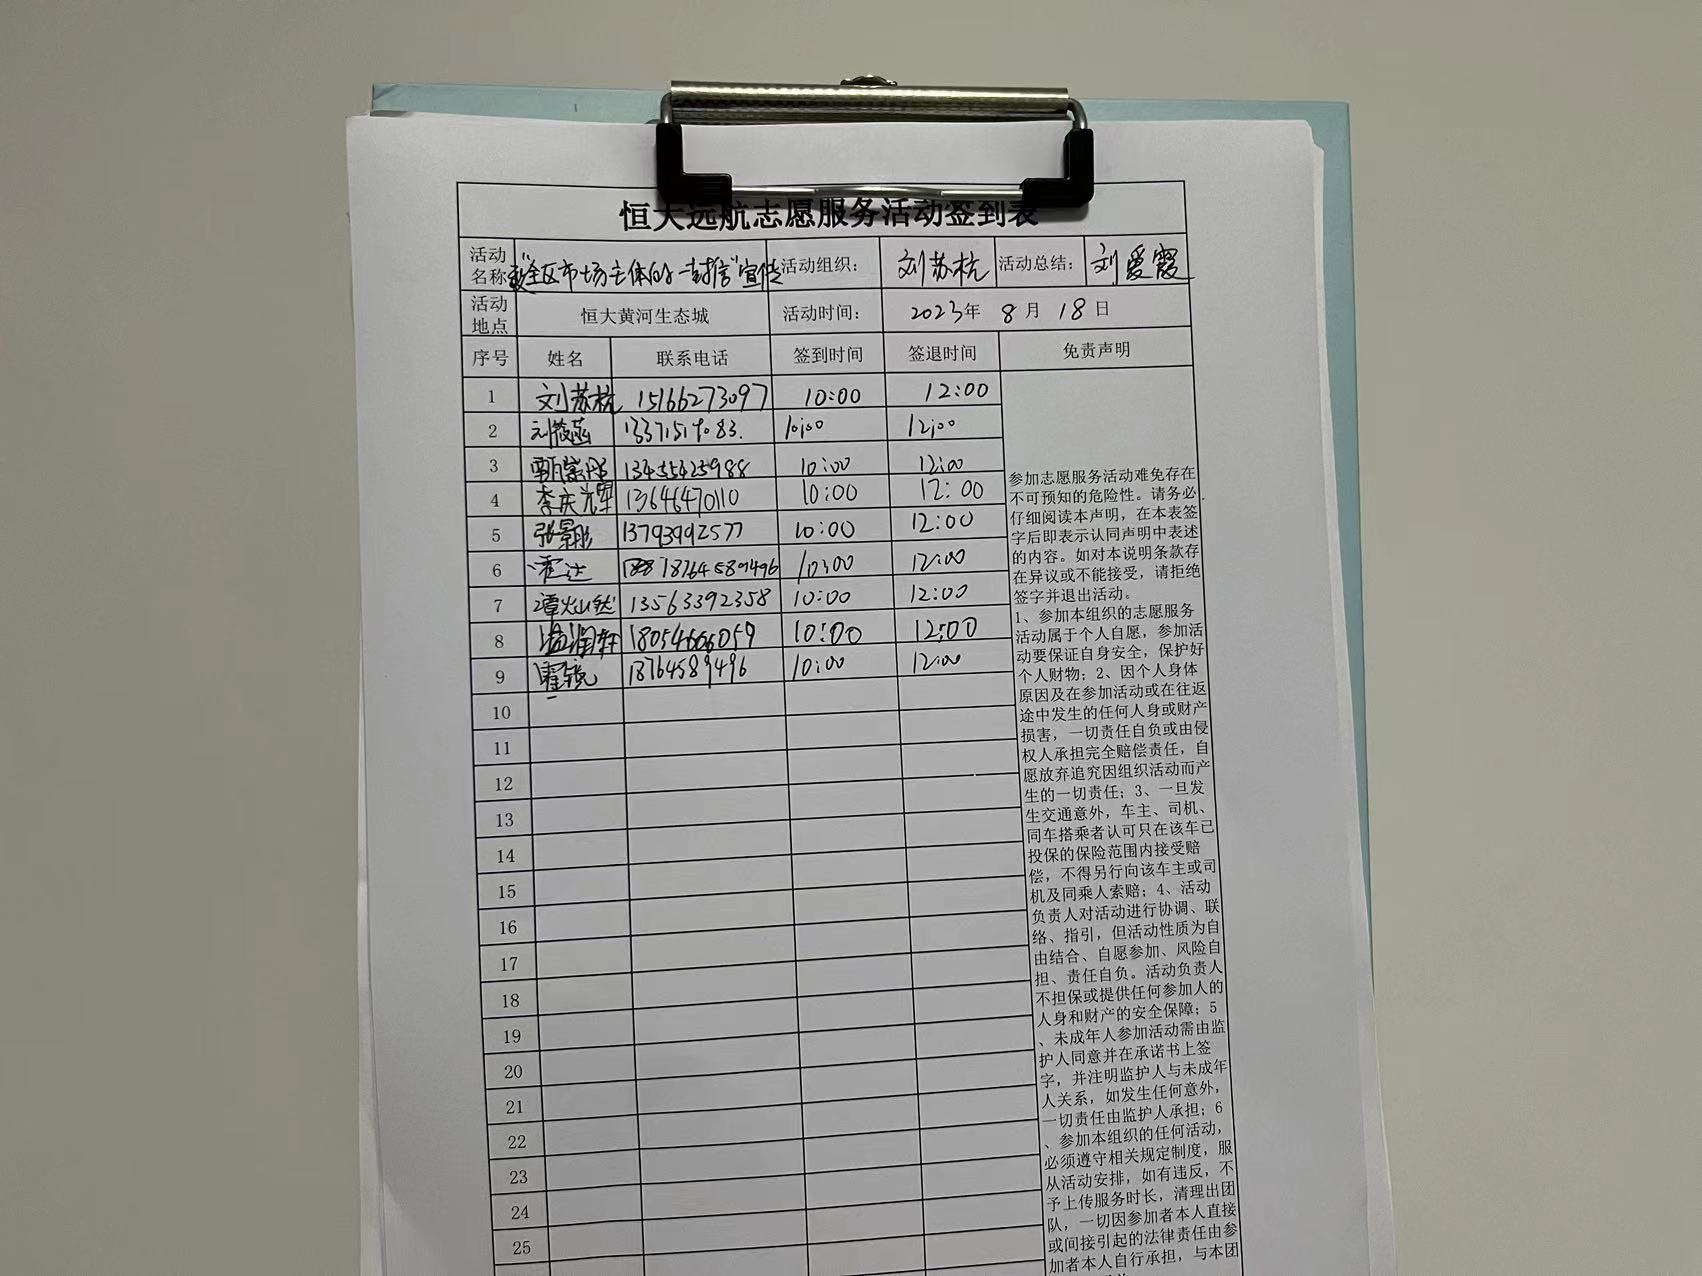 恒大远航志愿服务活动签到表
活动名称 "致全区市场主体的一封信"宣传 活动组织： 刘苏杭 活动总结： 刘爱霞
活动地点 恒大黄河生态城 活动时间： 2023年 8 月 18 日
序号 姓名 联系电话 签到时间 签退时间 免责声明
1 刘苏杭 15166273097 10:00 12:00
2 10:00 12:00
3 13455425988 10:00 12:00
4 李庆光 13646470110 10:00 12:00
5 张景彤 13793992577 10:00 12:00
6 霍达 18764589496 10:00 12:00
7 谭灿然 13563392358 10:00 12:00
8 18054666059 10:00 12:00
9 18764589496 10:00 12:00
10
11
12
13
14
15
16
17
18
19
20
21
22
23
24
25
参加志愿服务活动难免存在
不可预知的危险性。请务必
仔细阅读本声明，在本表签
字后即表示认同声明中表述
的内容。如对本说明条款存
在异议或不能接受，请拒绝
签字并退出活动。
1、参加本组织的志愿服务
活动属于个人自愿，参加活
动要保证自身安全，保护好
个人财物；2、因个人身体
原因及在参加活动或在往返
途中发生的任何人身或财产
损害，一切责任自负或由侵
权人承担完全赔偿责任，自
愿放弃追究因组织活动而产
生的一切责任；3、一旦发
生交通意外，车主、司机、
同车搭乘者认可只在该车已
投保的保险范围内接受赔
偿，不得另行向该车主或司
机及同乘人索赔；4、活动
负责人对活动进行协调、联
络、指引，但活动性质为自
由结合、自愿参加、风险自
担、责任自负。活动负责人
不担保或提供任何参加人的
人身和财产的安全保障；5
、未成年人参加活动需由监
护人同意并在承诺书上签
字，并注明监护人与未成年
人关系，如发生任何意外，
一切责任由监护人承担；6
、参加本组织的任何活动，
必须遵守相关规定制度，服
从活动安排，如有违反，不
予上传服务时长，清理出团
队，一切因参加者本人直接
或间接引起的法律责任由参
加者本人自行承担，与本团